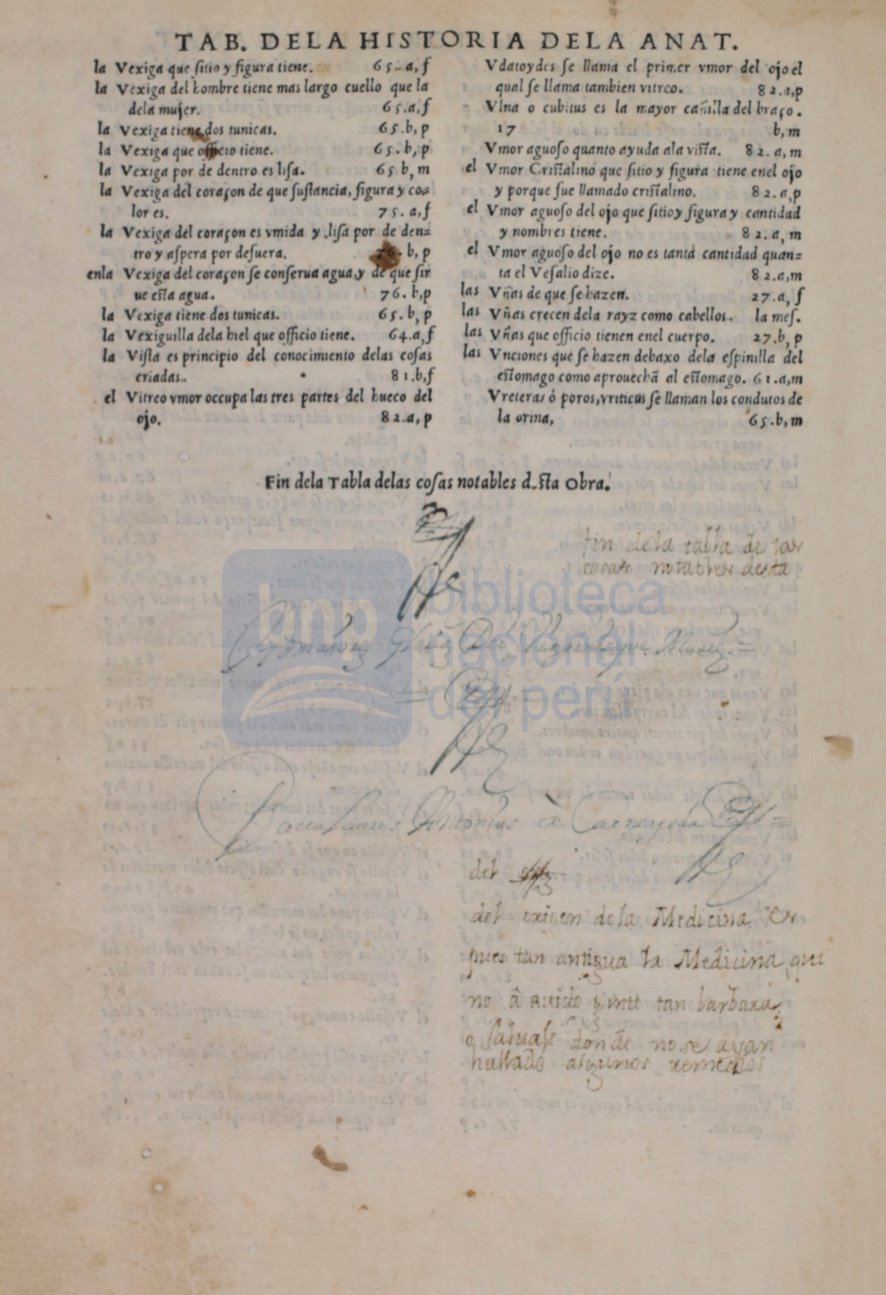 TAB. DELA HISTORIA DELA ANAT.
la Vexiga que ſitio y figura tiene. 65.. a, f
la Vexiga del hombre tiene mas largo cuello que la
dela mujer. 65.a,f
la Vexiga tiene dos tunicas. 65.b, p
la Vexiga que officio tiene. 65. b, p
la Vexiga por de dentro es liſa. 65 b, m
la Vexiga del coraçon de que ſuſtancia, figura y co=
lor es. 75. a,f
la Vexiga del coraçon es vmida y liſa por de den=
tro y aſpera por defuera. b, p
enla Vexiga del coraçon ſe conſerua agua, y de que ſir
ue eſta agua. 76. b,p
la Vexiga tiene dos tunicas. 65. b, p
la Vexiguilla dela hiel que officio tiene. 64.a,f
la Viſta es principio del conocimiento delas coſas
criadas.. 81.b,f
el Vitreo vmor occupa las tres partes del hueco del
ojo. 82.a, p
Vdatoydes ſe llama el primer vmor del ojo el
qual ſe llama tambien vitreo. 82.a,p
Vlna o cubitus es la mayor cañilla del braço.
17 b, m
Vmor aguoſo quanto ayuda ala viſta. 82. a, m
el Vmor Criſtalino que ſitio y figura tiene enel ojo
y porque fue llamado criſtalino. 82.a,p
el Vmor aguoſo del ojo que ſitio y figura y cantidad
y nombres tiene. 82. a, m
el Vmor aguoſo del ojo no es tanta cantidad quan=
ta el Veſalio dize. 82.a,m
las Vñas de que ſe hazen. 27.a, f
las Vñas crecen dela rayz como cabellos. la meſ.
las Vñas que officio tienen enel cuerpo. 27.b, p
las Vnciones que ſe hazen debaxo dela eſpinilla del
eſtomago como aprouechã al eſtomago. 61.a,m
Vreteras ó poros, vriticus ſe llaman los condutos de
la orina, 65.b, m
Fin dela Tabla delas coſas notables d.ſta Obra.
fin dela tabla de las
cosas notables desta
bnp biblioteca
nacional
del perú
del
del origen dela Medicina es
pues tan antigua la Medicina que
no â auido gente tan barbara
o saluaſe donde no se ayan
hallado algunos remedios